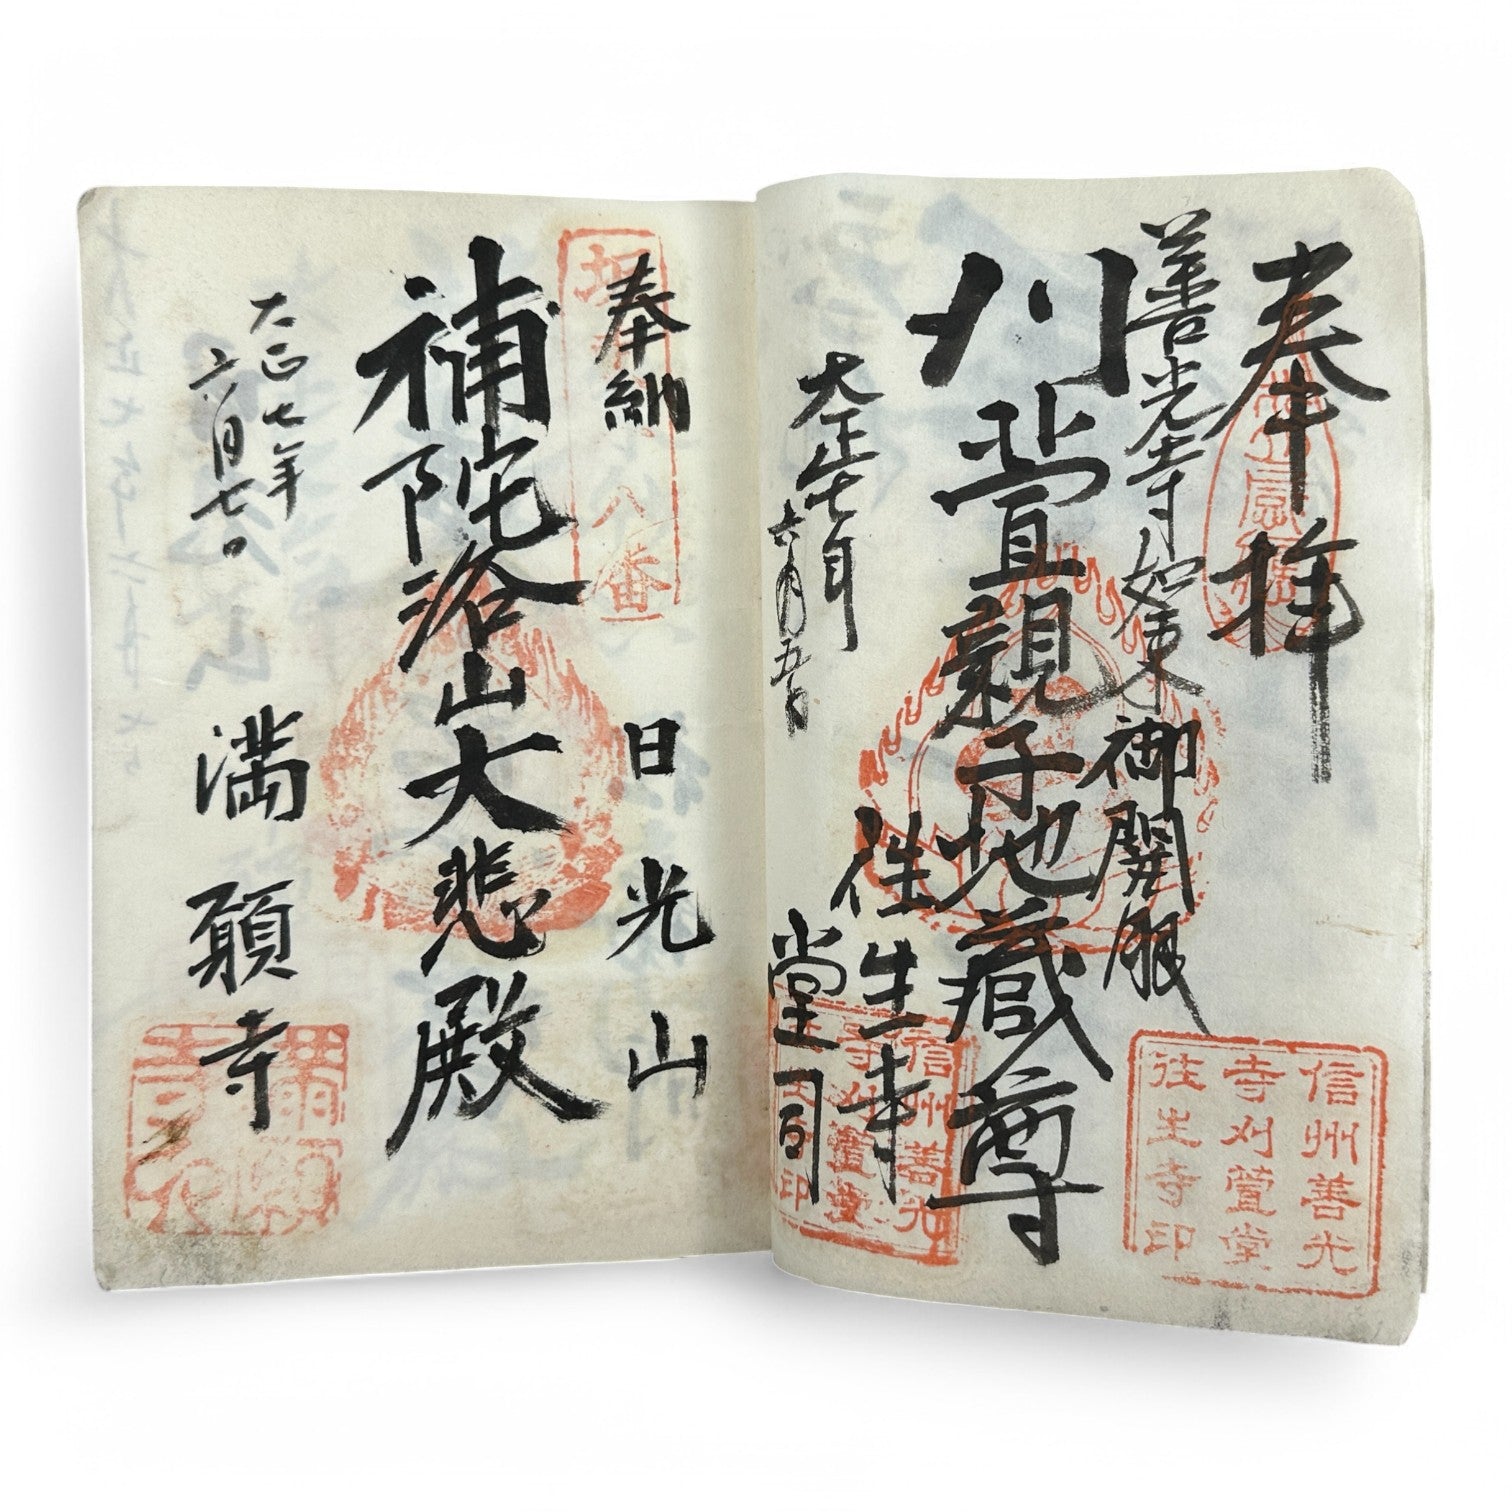 奉拝
善光寺如来御開帳
刈萱親子地蔵尊
往生寺
堂司
大正七年
六月五日
信州善光
寺刈萱堂
往生寺印
信州善光
寺刈萱堂
奉納
八番
日光山
補陀洛山大悲殿
満願寺
大正七年
六月七日